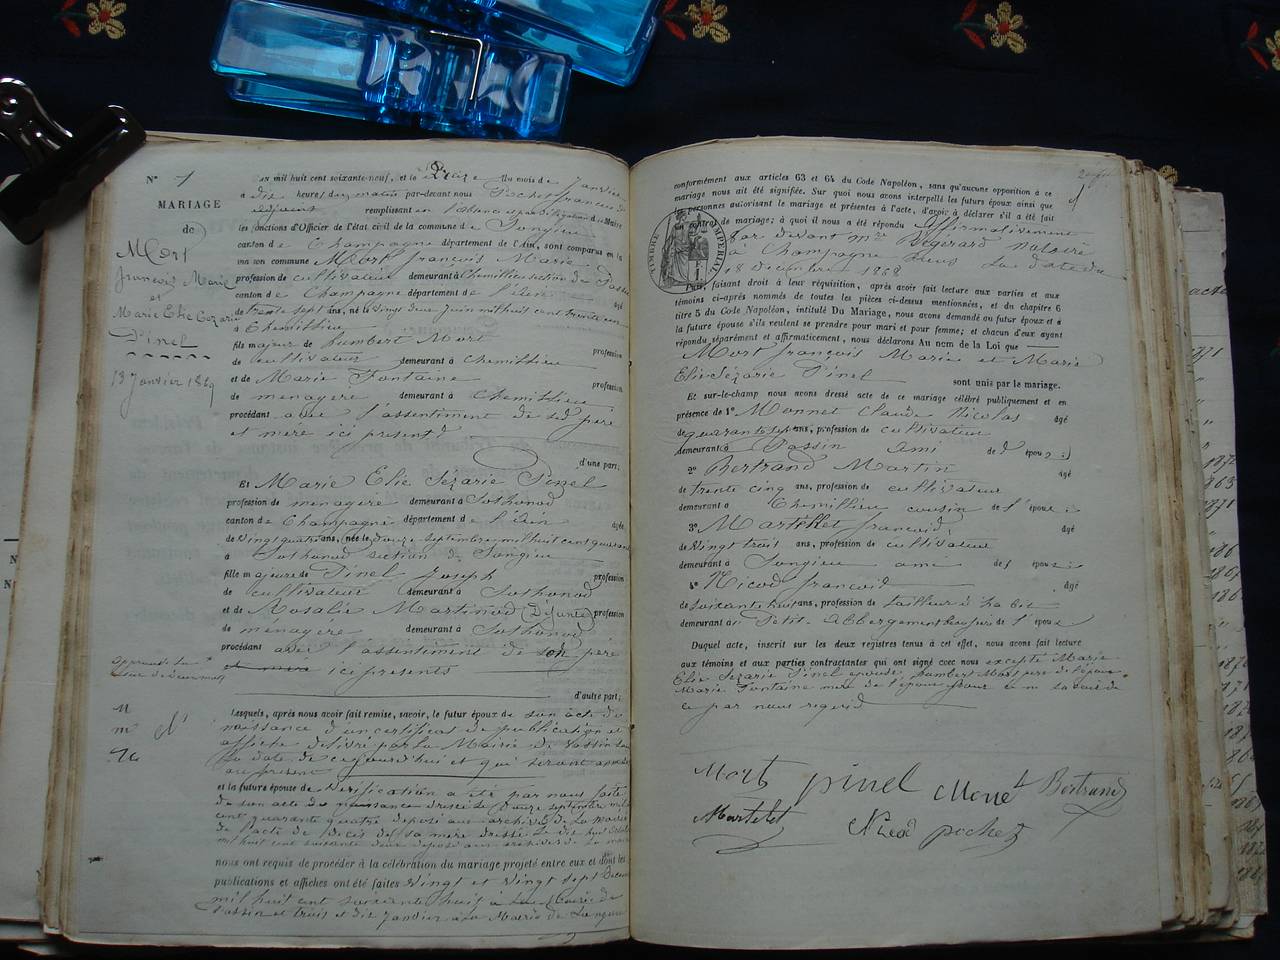 N° 1
MARIAGE
de
Mort
François Marie
et
Marie Elie Cezarie
Pinel
13 Janvier 1869
L'an mil huit cent soixante-neuf, et le treize du mois de Janvier
à dix heures du matin par-devant nous Pochet François
adjoint remplissant en l'absence et par délégation du Maire
les fonctions d'Officier de l'état civil de la commune de Songieu
canton de Champagne département de l'Ain, sont comparus en la
maison commune Mort François Marie
profession de cultivateur demeurant à Chemillieu section de Passin
canton de Champagne département de l'Ain âgé
de trente sept ans, né le vingt deux Juin mil huit cent trente un
à Chemillieu
fils majeur de humbert Mort profession
de cultivateur demeurant à Chemillieu
et de Marie Fontaine profession
de menagere demeurant à Chemillieu
procédant avec l'assentiment de ses pere
et mere ici presents
d'une part;
Et Marie Elie Sezarie Pinel
profession de menagere demeurant à Sothonod
canton de Champagne département de l'Ain âgée
de vingt quatre ans, née le douze septembre mil huit cent quarante
à Sothonod section de Songieu
fille majeure de Pinel Joseph profession
de cultivateur demeurant à Sothonod
et de Rosalie Martinod (Défunte) profession
de ménagère demeurant à Sothonod
procédant avec l'assentiment de son pere
et mere ici presents
d'autre part;
Lesquels, après nous avoir fait remise, savoir, le futur époux de son acte de
naissance d'un certificat de publication et
affiche délivré par la Mairie de Passin sous
la date de ce jourd'hui et qui seront annexés
au présent
et la future épouse de Vérification a été par nous faite
de son acte de naissance dressé le douze septembre mil huit
cent quarante quatre deposé aux archives de la mairie
de l'acte de décès de sa mère dressé le dix huit
mil huit cent soixante deux deposé aux archives de la
nous ont requis de procéder à la célébration du mariage projeté entre eux et dont les
publications et affiches ont été faites vingt et vingt sept Decembre
mil huit cent soixante huit à la Mairie de
Passin et trois et dix Janvier à la Mairie de Songieu
conformément aux articles 63 et 64 du Code Napoléon, sans qu'aucune opposition à ce
mariage nous ait été signifiée. Sur quoi nous avons interpellé les futurs époux ainsi que
les personnes autorisant le mariage et présentes à l'acte, d'avoir à déclarer s'il a été fait
un contrat de mariage; à quoi il nous a été répondu Affirmativement
par devant me Begerard Notaire
à Champagne sous la date du
18 decembre 1868
TIMBRE IMPÉRIAL
Puis, faisant droit à leur réquisition, après avoir fait lecture aux parties et aux
témoins ci-après nommés de toutes les pièces ci-dessus mentionnées, et du chapitre 6
titre 5 du Code Napoléon, intitulé Du Mariage, nous avons demandé au futur époux et à
la future épouse s'ils veulent se prendre pour mari et pour femme; et chacun d'eux ayant
répondu séparément et affirmativement, nous déclarons Au nom de la Loi que
Mort françois Marie et Marie
Elie Sézarie Pinel sont unis par le mariage.
Et sur-le-champ nous avons dressé acte de ce mariage célébré publiquement et en
présence de 1° Monnet Claude Nicolas âgé
de quarante sept ans, profession de cultivateur
demeurant à Passin ami de l'époux;
2° Bertrand Martin âgé
de trente cinq ans, profession de cultivateur
demeurant à Chemillieu cousin de l'époux;
3° Martelet françois âgé
de Vingt trois ans, profession de cultivateur
demeurant à Songieu ami des époux;
4° Nicod françois âgé
de soixante huit ans, profession de tailleur d'habit
demeurant au Petit-Abbergement beau pere de l'époux
Duquel acte, inscrit sur les deux registres tenus à cet effet, nous avons fait lecture
aux témoins et aux parties contractantes qui ont signé avec nous excepté Marie
Elie Sezarie Pinel epouse, humbert Mort pere de l'époux
Marie Fontaine mere de l'époux pour ce ne savoir de
ce par nous requis
Mort Pinel Monet Bertrand
Martelet Nicod pochet